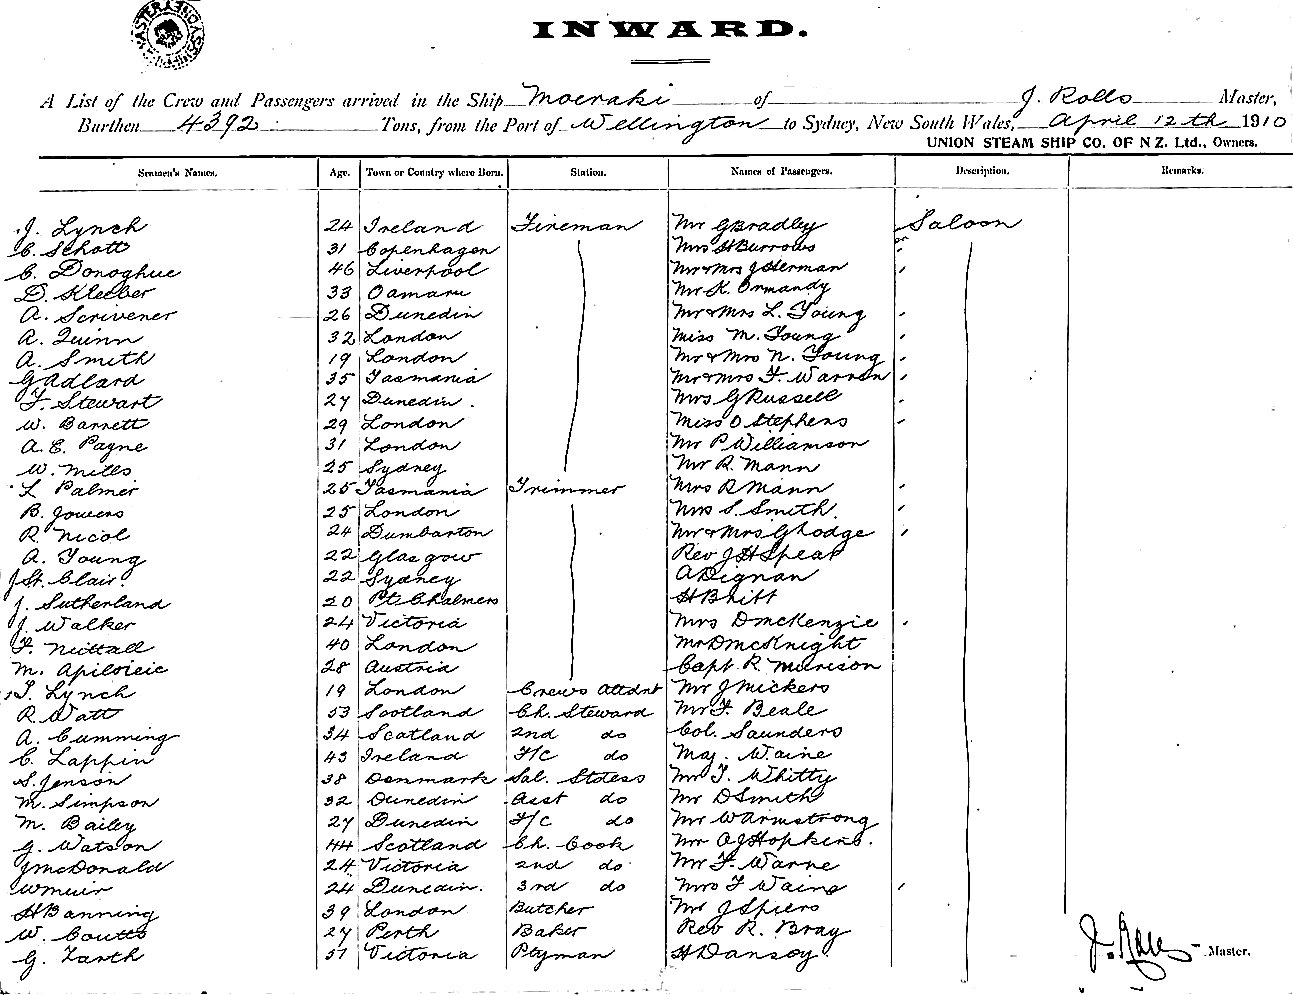 INWARD.
A List of the Crew and Passengers arrived in the Ship Moeraki of J. Rolls Master,
Burthen 4392 Tons, from the Port of Wellington to Sydney, New South Wales, April 12th 1910
UNION STEAM SHIP CO. OF N Z. Ltd., Owners.
Seamen's Names. Age. Town or Country where Born. Station. Names of Passengers. Description. Remarks.
J. Lynch 24 Ireland Fireman Mr G Bradley Saloon
C. Schott 31 Copenhagen Mrs H Burrows "
C. Donoghue 46 Liverpool Mr & Mrs J Herman "
D. Kleeber 33 Oamaru Mr K. Ormandy
A. Scrivener 26 Dunedin Mr & Mrs L. Young "
A. Quinn 32 London Miss M. Young "
A. Smith 19 London Mr & Mrs N. Young "
G Adlard 35 Tasmania Mr & Mrs F. Warren "
F. Stewart 27 Dunedin. Mrs G Russell "
W. Barnett 29 London Miss O Stephens "
A. E. Payne 31 London Mr P. Williamson
W. Mills 25 Sydney Mr R. Mann
L Palmer 25 Tasmania Trimmer Mrs R Mann "
B. Gowers 25 London Mrs S. Smith. "
R. Nicol 24 Dumbarton Mr & Mrs G Hodge "
A. Young 22 Glasgow Rev J H Spear
J St. Clair. 22 Sydney A Dignan
J. Sutherland 20 Pt. Chalmers H Britt
J. Walker 24 Victoria Mrs D McKenzie "
F. Nuttall 40 London Mr D McKnight
M. 28 Austria Capt. R. Morrison
T. Lynch 19 London Crews Attdnt Mr J Mickers
R. Watt 53 Scotland Ch. Steward Mr F. Beale
A. Cumming 34 Scotland 2nd do Col. Saunders
C. Lappin 43 Ireland F/C do Maj. Waine
S. Jenson 38 Denmark Sal. Stdess Mr T. Whitty
M. Simpson 32 Dunedin Asst do Mr D Smith
M. Bailey 27 Dunedin F/C do Mr W Armstrong
G. Watson 44 Scotland Ch. Cook Mr O J Hopkins.
J McDonald 24 Victoria 2nd do Mr F. Warne
W Muir 24 Dunedin. 3rd do Mrs F Waine "
H Banning 39 London Butcher Mr J Spiers
W. Coutts 27 Perth Baker Rev R. Bray
G. Zarth 57 Victoria Ptyman H Dansoy.
J. Rolls Master.